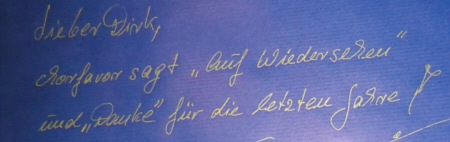 Lieber Dirk,
Chorfavor sagt „Auf Wiedersehen"
und „Danke" für die letzten Jahre!